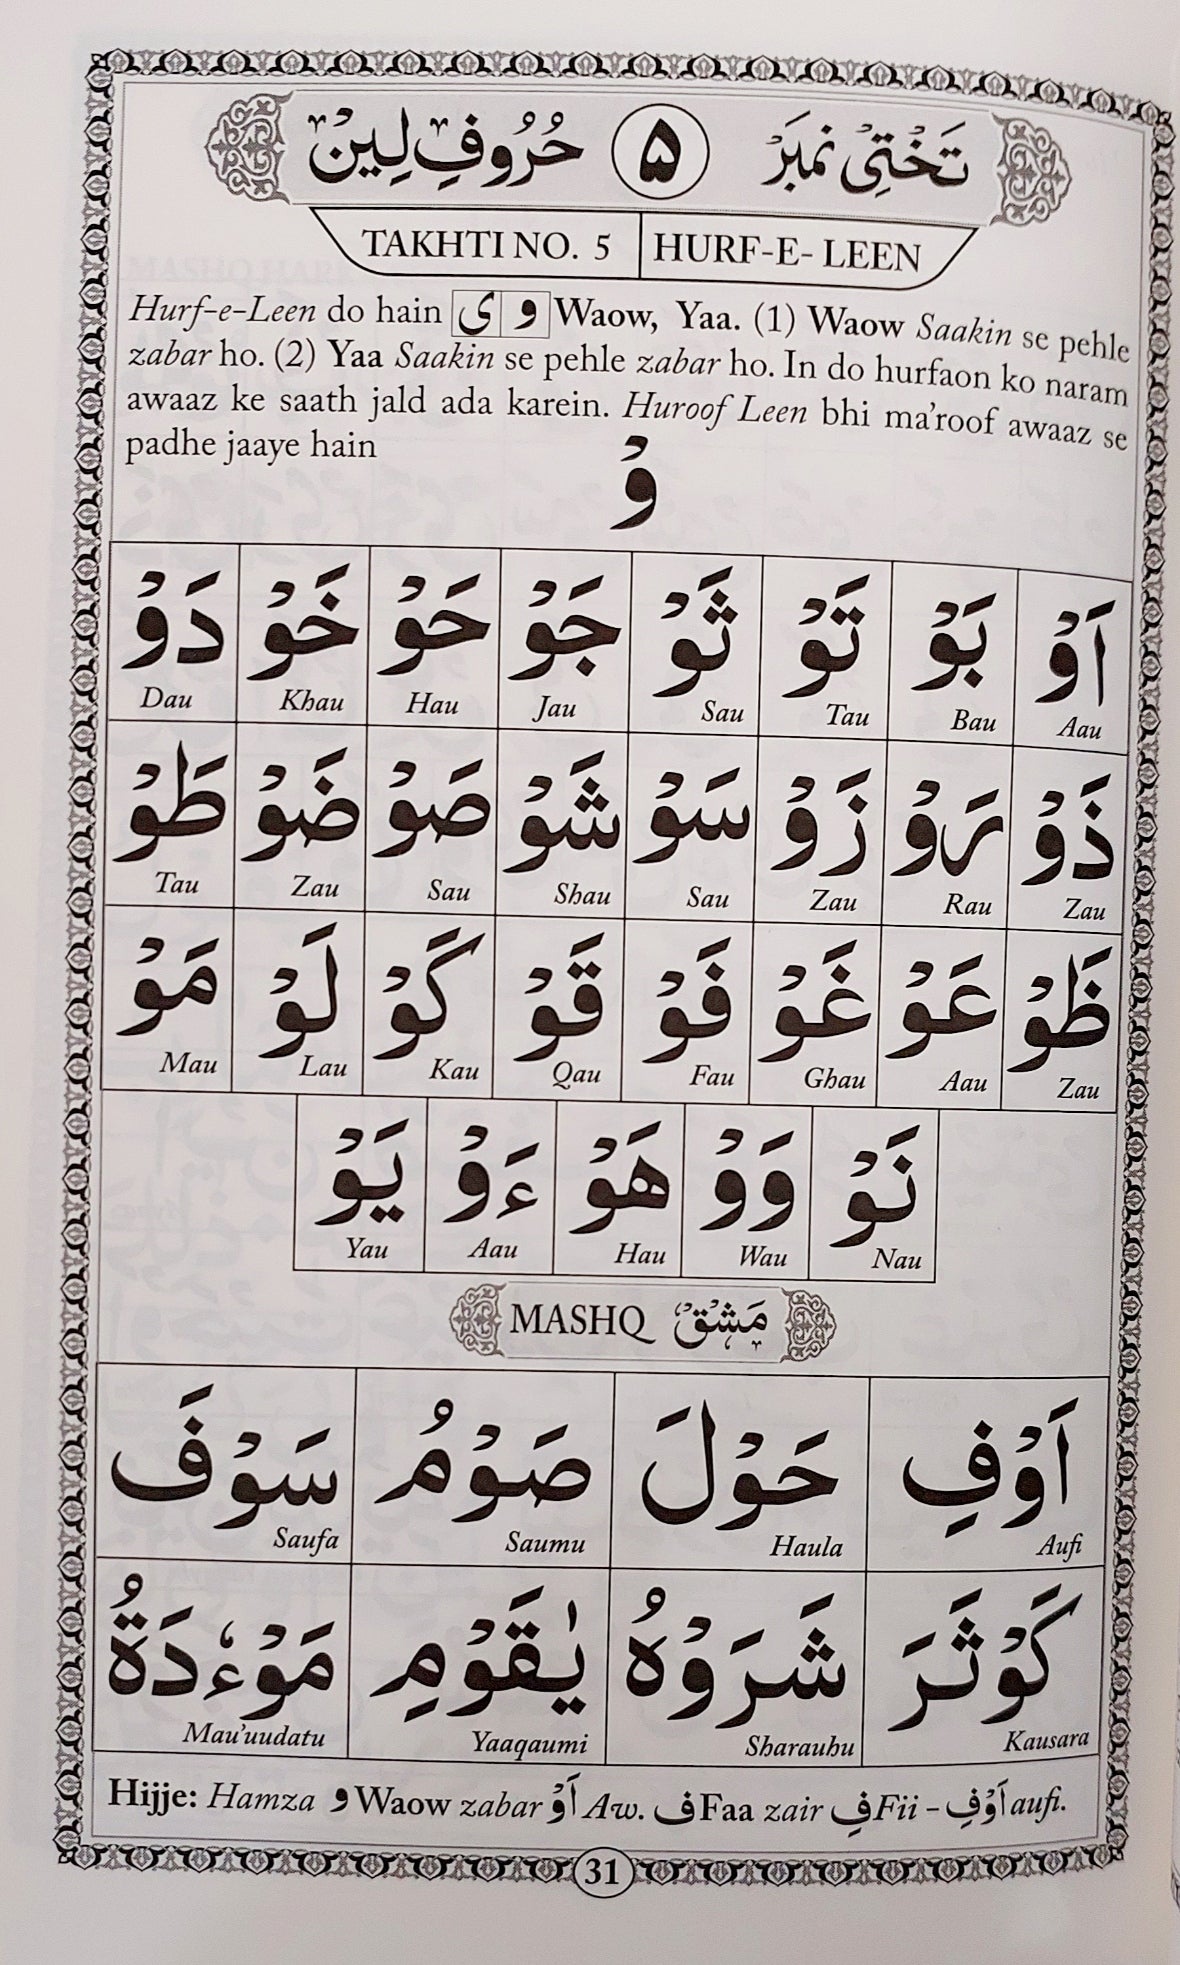 تَختِی نمبَر ۵ حُرُوفِ لِین
TAKHTI NO. 5 HURF-E- LEEN
Hurf-e-Leen do hain و ی Waow, Yaa. (1) Waow Saakin se pehle
zabar ho. (2) Yaa Saakin se pehle zabar ho. In do hurfaon ko naram
awaaz ke saath jald ada karein. Huroof Leen bhi ma'roof awaaz se
padhe jaaye hain
وْ
اَوْ بَوْ تَوْ ثَوْ جَوْ حَوْ خَوْ دَوْ
Aau Bau Tau Sau Jau Hau Khau Dau
ذَوْ رَوْ زَوْ سَوْ شَوْ صَوْ ضَوْ طَوْ
Zau Rau Zau Sau Shau Sau Zau Tau
ظَوْ عَوْ غَوْ فَوْ قَوْ كَوْ لَوْ مَوْ
Zau Aau Ghau Fau Qau Kau Lau Mau
نَوْ وَوْ هَوْ ءَوْ يَوْ
Nau Wau Hau Aau Yau
MASHQ مَشْق
اَوْفِ حَوْلَ صَوْمُ سَوْفَ
Aufi Haula Saumu Saufa
كَوْثَرَ شَرَوْهُ يٰقَوْمِ مَوْءٗدَةُ
Kausara Sharauhu Yaaqaumi Mau'uudatu
Hijje: Hamza و Waow zabar اَوْ Aw. ف Faa zair فِ Fii - اَوْفِ aufi.
31